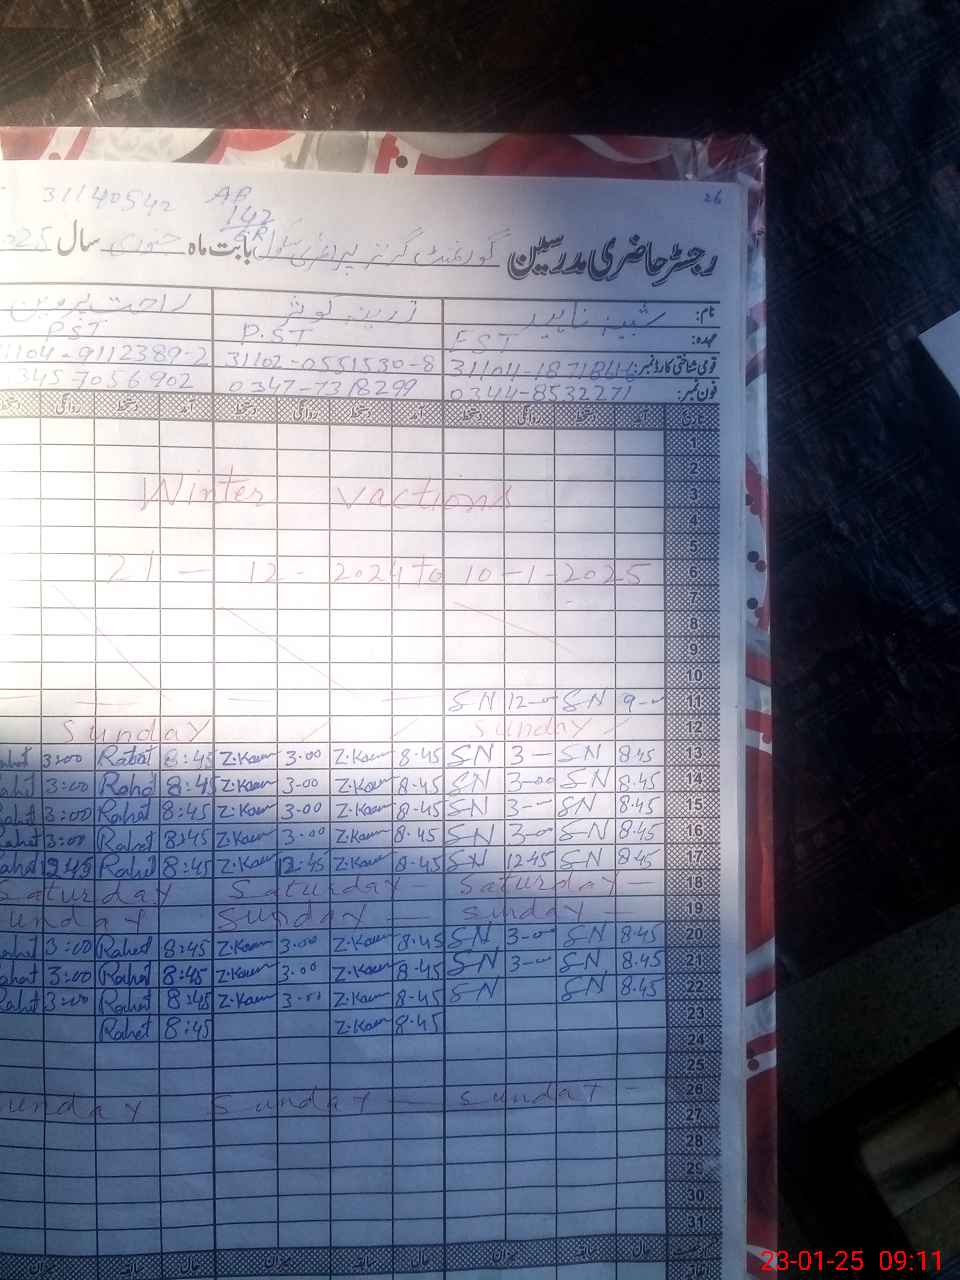 31140542 AP 26
142
6R
رجسٹر حاضری مدرسین گورنمنٹ گرلز پرائمری سکول بابت ماہ جنوری سال 025
نام: شبینہ ناہید زرینہ کوثر راحت پروین
عہدہ: EST P.ST PST
قومی شناختی کارڈ نمبر: 31102-0551530-8 1104-9112389-2
فون نمبر: 0344-8532271 0347-7318299 345-7056902
تاریخ آمد دستخط روانگی دستخط آمد دستخط روانگی دستخط آمد دستخط روانگی دستخط
1
2
Winter vactions 3
4
5
21 - 12 - 2024 to 10-1-2025 6
7
8
9
10
SN 12-00 SN 9-00 11
Sunday Sunday 12
Rahat 3:00 Rahat 8:45 Z.Kaur 3.00 Z.Kaur 8.45 SN 3- SN 8.45 13
Rahat 3:00 Rahat 8:45 Z.Kaur 3-00 Z.Kaur 8.45 SN 3-00 SN 8.45 14
Rahat 3:00 Rahat 8:45 Z.Kaur 3-00 Z.Kaur 8-45 SN 3- SN 8.45 15
Rahat 3:00 Rahat 8:45 Z.Kaur 3.00 Z.Kaur 8.45 SN 3-00 SN 8.45 16
Rahat 1245 Rahat 8:45 Z.Kaur 12.45 Z.Kaur 8-45 SN 1245 SN 8.45 17
Saturday Saturday - Saturday - 18
unday Sunday - Sunday - 19
Rahat 3:00 Rahat 8:45 Z.Kaur 3.00 Z.Kaur 8.45 SN 3-00 SN 8.45 20
Rahat 3:00 Rahat 8:45 Z.Kaur 3.00 Z.Kaur 8.45 SN 3- SN 8.45 21
Rahat 3:00 Rahat 8:45 Z.Kaur 3.00 Z.Kaur 8-45 SN SN 8.45 22
Rahat 8:45 Z.Kaur 8.45 23
24
25
unday Sunday - Sunday - 26
27
28
29
30
31
میزان سابقہ حال میزان سابقہ حال میزان سابقہ حال
23-01-25 09:11